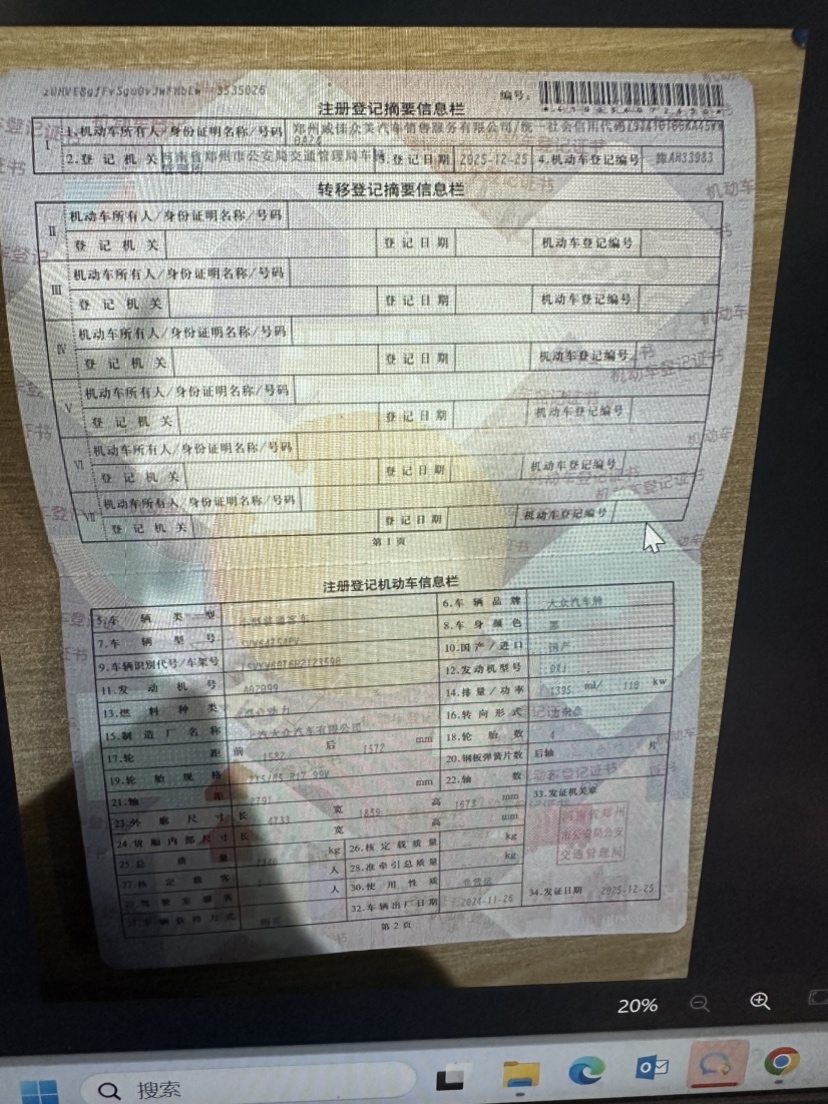 3535026
编号:
注册登记摘要信息栏
I 1.机动车所有人/身份证明名称/号码 郑州威佳众美汽车销售服务有限公司/统一社会信用代码/
2.登记机关 河南省郑州市公安局交通管理局车辆 3.登记日期 2025-12-25 4.机动车登记编号 豫AH33983
转移登记摘要信息栏
II 机动车所有人/身份证明名称/号码
登记机关 登记日期 机动车登记编号
III 机动车所有人/身份证明名称/号码
登记机关 登记日期 机动车登记编号
IV 机动车所有人/身份证明名称/号码
登记机关 登记日期 机动车登记编号
V 机动车所有人/身份证明名称/号码
登记机关 登记日期 机动车登记编号
VI 机动车所有人/身份证明名称/号码
登记机关 登记日期 机动车登记编号
VII 机动车所有人/身份证明名称/号码
登记机关 登记日期 机动车登记编号
第1页
注册登记机动车信息栏
5.车辆类型 小型普通客车 6.车辆品牌 大众汽车牌
7.车辆型号 8.车身颜色 黑
9.车辆识别代号/车架号 10.国产/进口 国产
11.发动机号 A02899 12.发动机型号
13.燃料种类 混合动力 14.排量/功率 1395 ml/ 110 kw
15.制造厂名称 上汽大众汽车有限公司 16.转向形式
17.轮距 前 1582 后 1572 mm 18.轮胎数 4
19.轮胎规格 215/65 R17 99V 20.钢板弹簧片数 后轴 片
21.轴距 2791 mm 22.轴数
23.外廓尺寸 长 4733 宽 1859 高 1673 mm 33.发证机关章
24.货厢内部尺寸 长 宽 高 mm
25.总质量 kg 26.核定载质量 kg
27.核定载客 人 28.准牵引总质量 kg
人 30.使用性质
32.车辆出厂日期 2024-11-26 34.发证日期 2025-12-25
河南省郑州
市公安局公安
交通管理局
第2页
20%
搜索